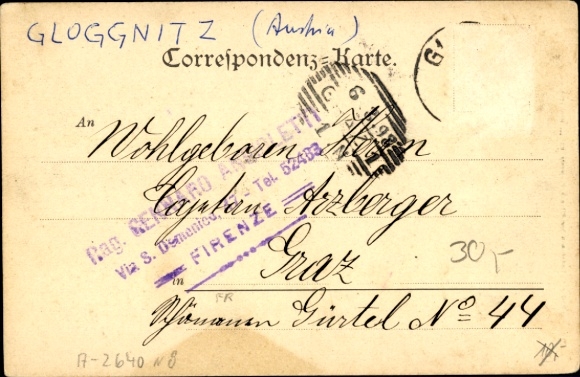 GLOGGNITZ (Austria)
Correspondenz-Karte.
An
Wohlgeboren Herrn
Cajetan Arzberger
Rag. GENNARO
Via S. Domenico, Tel. 52483
FIRENZE
30,-
in Graz
FR
Schönauer Gürtel No 44
A-2640 N8